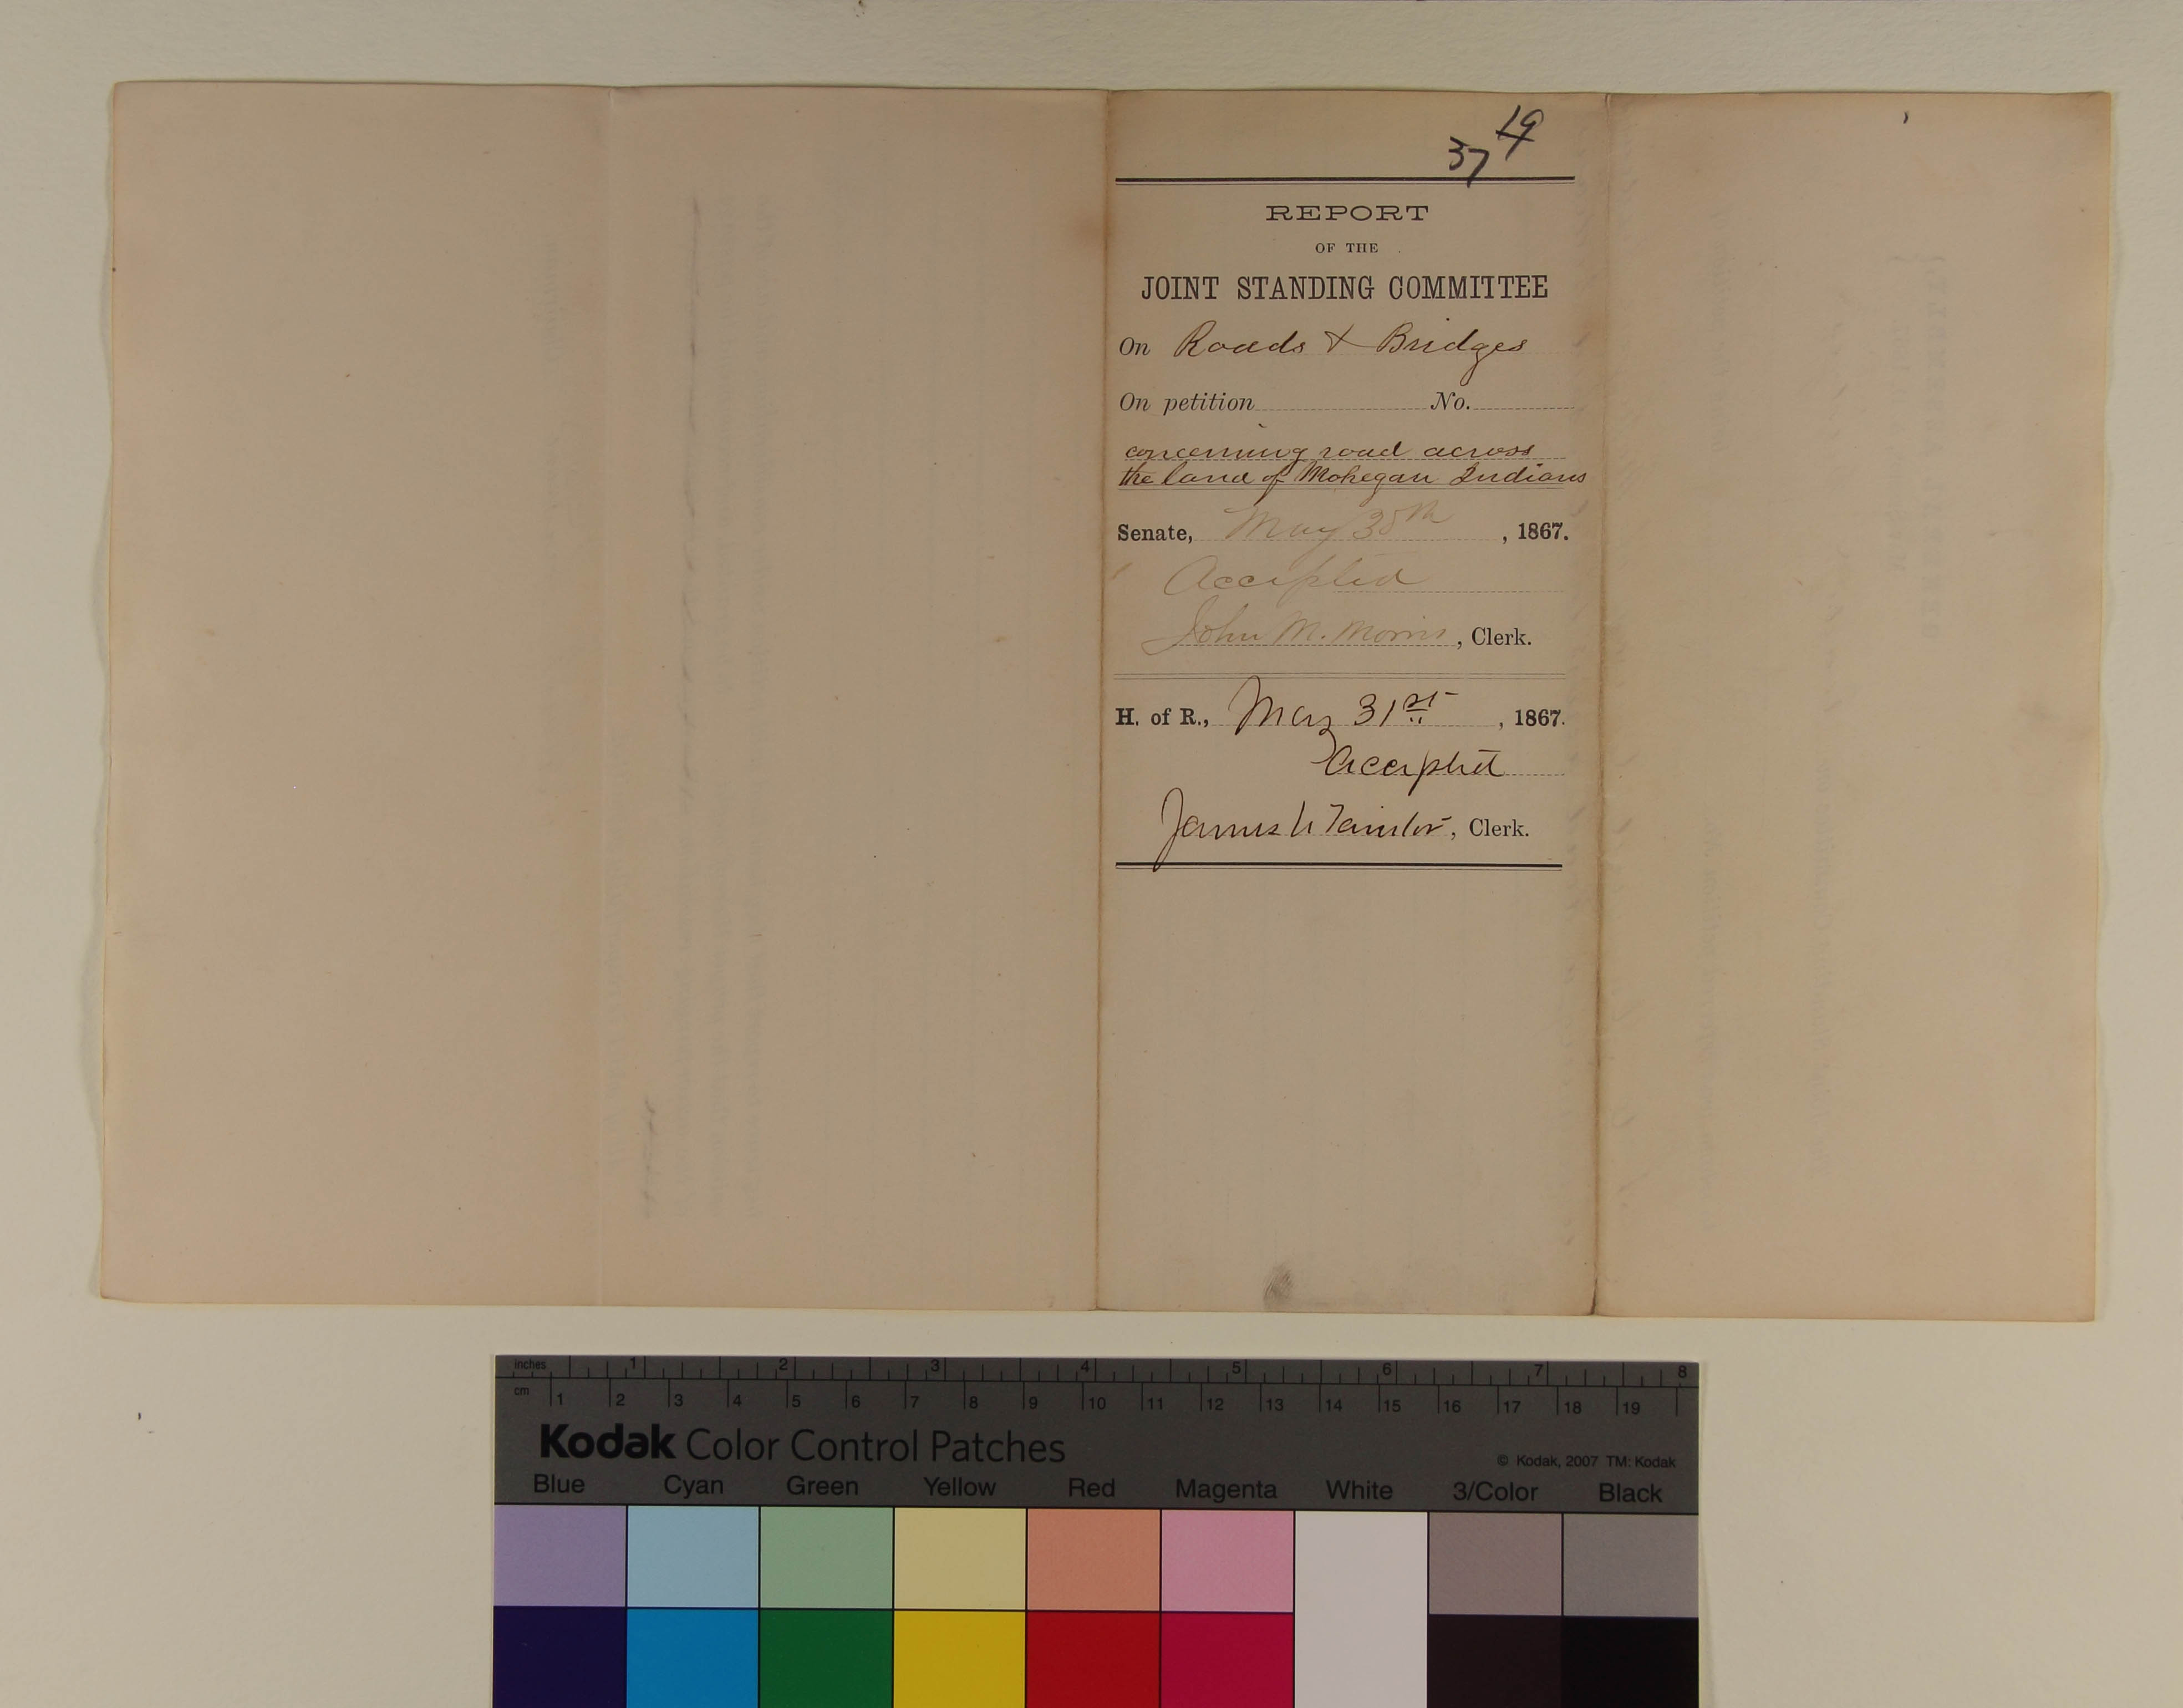 19
37
REPORT
OF THE
JOINT STANDING COMMITTEE
On Roads & Bridges
On petition No.
concerning road across
the land of Mohegan Indians
Senate, May 30th, 1867.
Accepted
John M. Morris, Clerk.
H. of R., May 31st, 1867.
Accepted
James Taintor, Clerk.
inches 1 2 3 4 5 6 7 8
cm 1 2 3 4 5 6 7 8 9 10 11 12 13 14 15 16 17 18 19
Kodak Color Control Patches
© Kodak, 2007 TM: Kodak
Blue Cyan Green Yellow Red Magenta White 3/Color Black